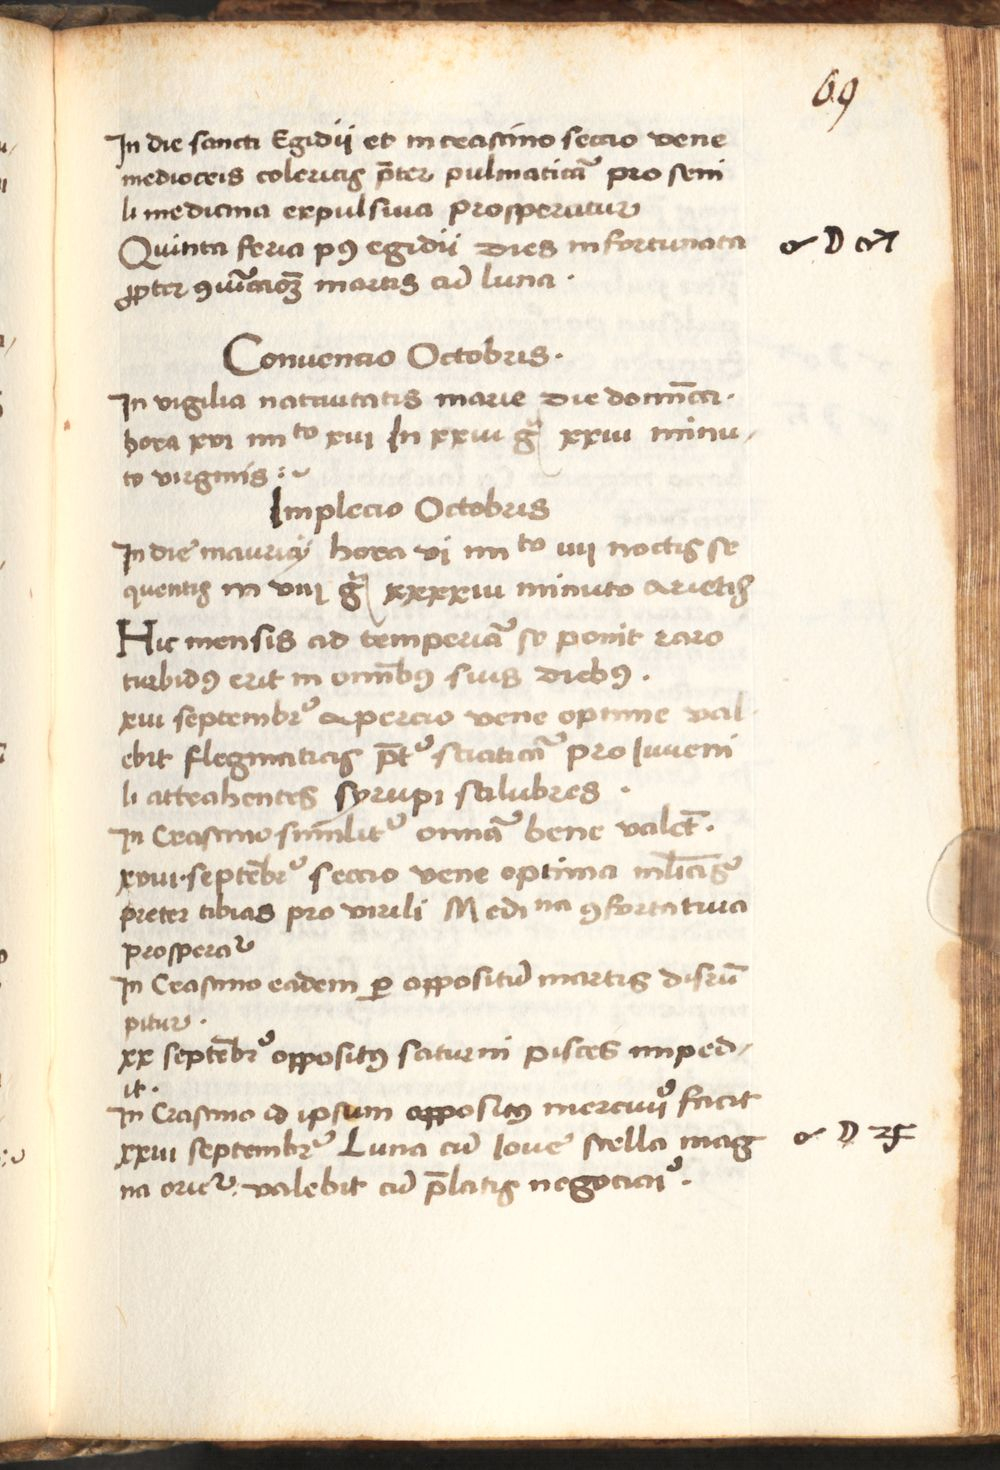 69
In die sancti Egidii et in crastino seccio vene
mediocris colericis p̄ter pulmaticā pro seni
li medicina expulsiva prosperatur
Quinta feria pꝯ egidii dies infortunata ☌ ☽ ♂
ꝓpter ꝯiūccioꝫ martis cū luna .
Convencio Octobris .
In vigilia nativitatis marie die domīca .
hora xvi mi to xvii In xxiii gͣ xxiii minu
to virginis :
Implecio Octobris
In die mauricij hora vi mi to iiii noctis se
quentis in viii gͣ xxxxiii minuto arietis
Hic mensis ad temperiā se ponit raro
turbidꝯ erit in omībꝯ suis diebꝯ .
xiii septembrꝰ apercio vene optime val
ebit flegmaticis p̄tꝰ sciaticā pro Iuveni
li attrahentes syrupi salubres .
In Crastino similitꝰ omnīa bene valet .
xviii septēbrꝰ seccio vene optima mlīcis
preter tibias pro virili Medi na ꝯfortativa
prosperaꝛ
In Crastino eadem ꝑ oppositū martis disrū
pitur .
xx septēbrꝰ oppositꝯ saturni pisces imped
it .
In Crastino id ipsum oppositꝯ mercurii facit
xxiii septembrꝰ Luna cū Iove stella mag ☌ ☽ ♃
na orieꝛ . valebit cū p̄latis negociaiꝰ .